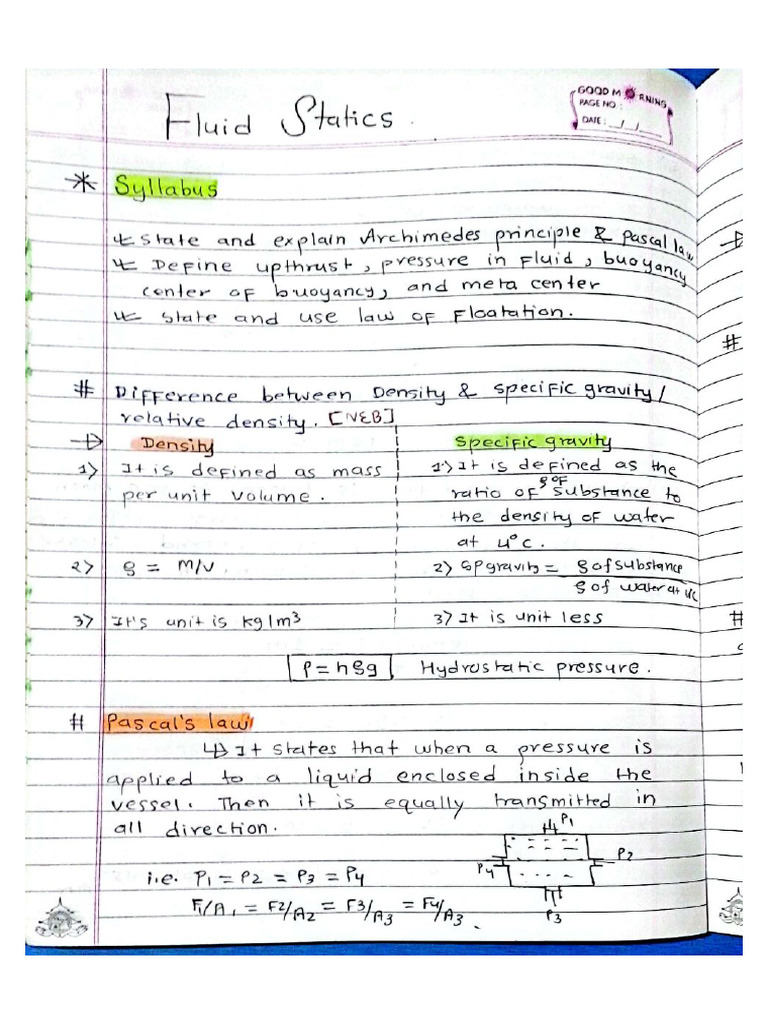 Fluid Statics.
GOOD MORNING
PAGE NO.:
DATE: / /
* Syllabus
State and explain Archimedes principle & pascal law
Define upthrust, pressure in Fluid, buoyancy
center of buoyancy, and meta center
State and use law of Floatation.
# Difference between Density & specific gravity/
relative density. [NEB]
Density
1) It is defined as mass
per unit volume.
2) ρ = m/v.
3) It's unit is kg/m³
Specific gravity
1) It is defined as the
ratio of ρ of substance to
the density of water
at 4°c.
2) SP gravity = ρ of substance
ρ of water at 4°C
3) It is unit less
P = hρg Hydrostatic pressure.
# Pascal's law
It states that when a pressure is
applied to a liquid enclosed inside the
vessel. Then it is equally transmitted in
all direction.
i.e. P1 = P2 = P3 = P4
F1/A1 = F2/A2 = F3/A3 = F4/A3.
P1
P2
P4
P3